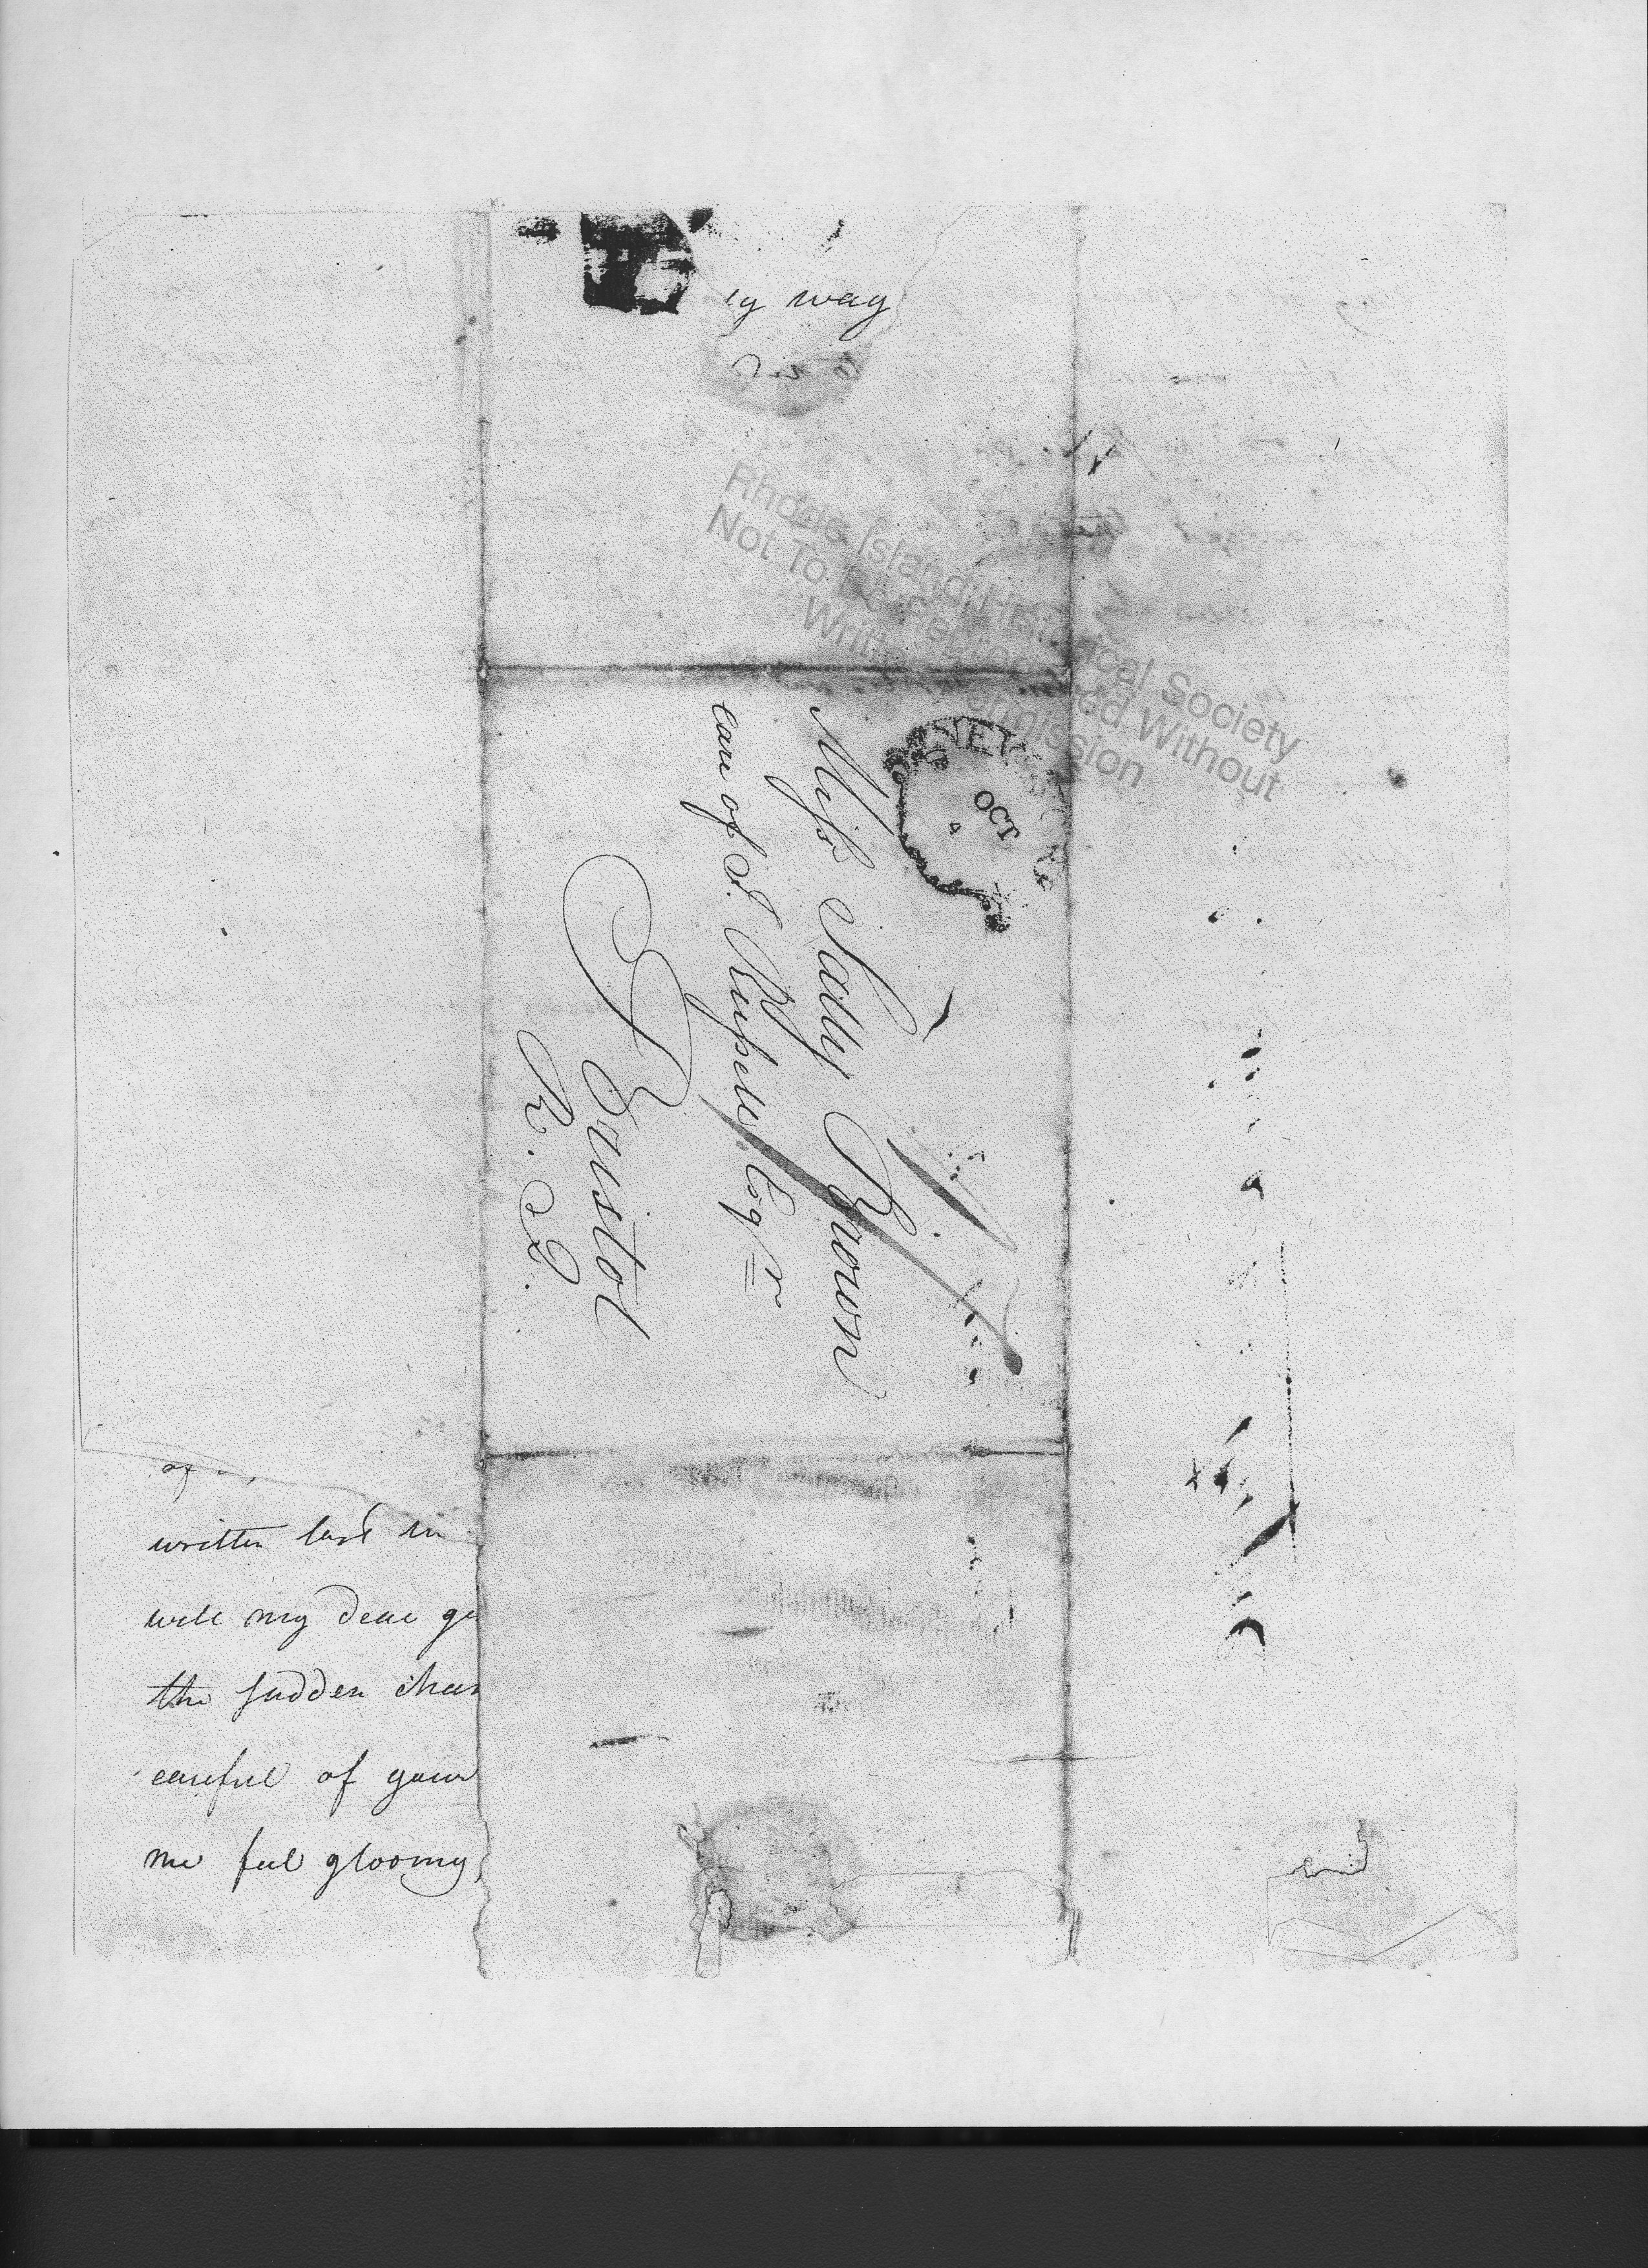 ey way
Rhode Island Historical Society
Not To Be Reproduced Without
Written Permission
NEW
OCT
4
Miss Sally Brown
care of J. Russell Esqr
Bristol
R. I.
of
written last
well my dear
the sudden
careful of your
me feel gloomy